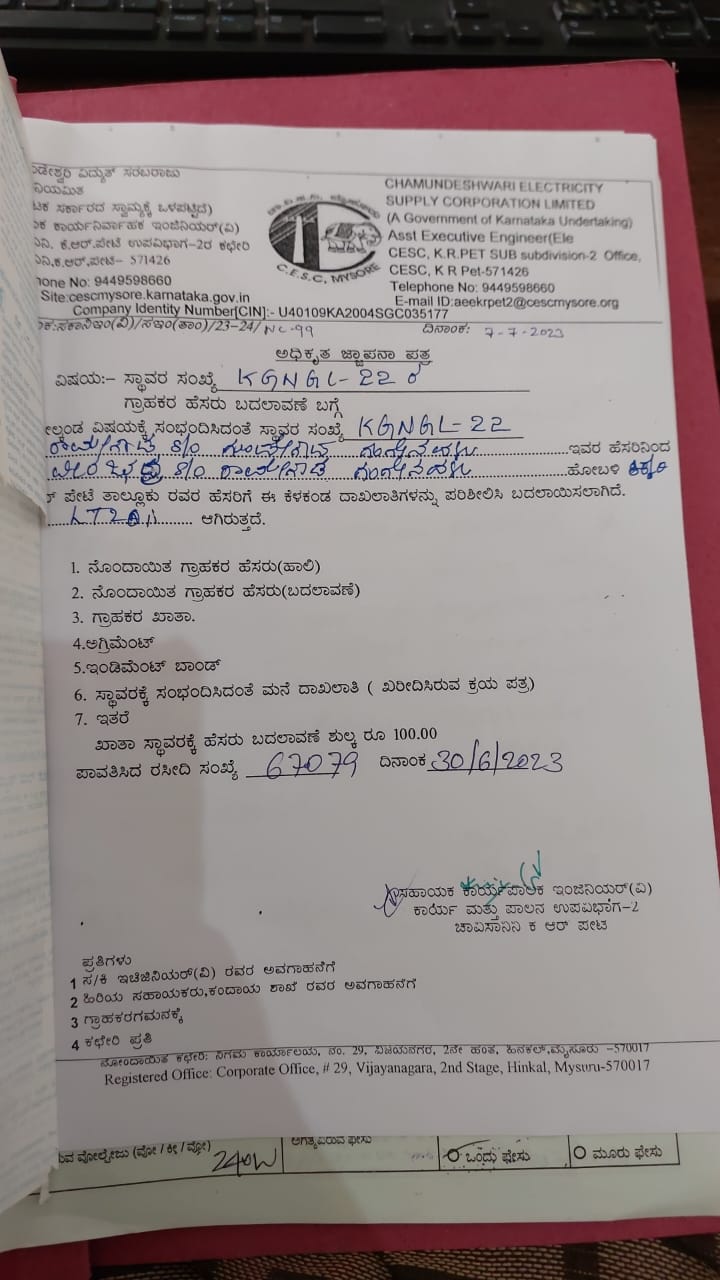 ಡೇಶ್ವರಿ ವಿದ್ಯುತ್ ಸರಬರಾಜು
ನಿಯಮಿತ
ಟಕ ಸರ್ಕಾರದ ಸ್ವಾಮ್ಯಕ್ಕೆ ಒಳಪಟ್ಟಿದೆ)
ಕ ಕಾರ್ಯನಿರ್ವಾಹಕ ಇಂಜಿನಿಯರ್(ವಿ)
ನಿ, ಕೆ.ಆರ್.ಪೇಟೆ ಉಪವಿಭಾಗ-2ರ ಕಛೇರಿ
ನಿ,ಕೆ.ಆರ್.ಪೇಟೆ- 571426
hone No: 9449598660
Site:cescmysore.karnataka.gov.in
C.E.S.C, MYSORE
CHAMUNDESHWARI ELECTRICITY
SUPPLY CORPORATION LIMITED
(A Government of Karnataka Undertaking)
Asst Executive Engineer(Ele
CESC, K.R.PET SUB subdivision-2 Office,
CESC, K R Pet-571426
Telephone No: 9449598660
E-mail ID:aeekrpet2@cescmysore.org
Company Identity Number[CIN]:- U40109KA2004SGC035177
ಕ:ಸಕಾನಿಇಂ(ವಿ)/ಸಇಂ(ತಾಂ)/23-24/ NC-99 ದಿನಾಂಕ: 7-7-2023
ಅಧಿಕೃತ ಜ್ಞಾಪನಾ ಪತ್ರ
ವಿಷಯ:- ಸ್ಥಾವರ ಸಂಖ್ಯೆ KGNGL-22 ರ
ಗ್ರಾಹಕರ ಹೆಸರು ಬದಲಾವಣೆ ಬಗ್ಗೆ
ೇಲ್ಕಂಡ ವಿಷಯಕ್ಕೆ ಸಂಭಂದಿಸಿದಂತೆ ಸ್ಥಾವರ ಸಂಖ್ಯೆ KGNGL-22
ರಾಮೇಗೌಡ S/O ಗಂಗೇನಹಳ್ಳಿ ಇವರ ಹೆಸರಿನಿಂದ
ವೀರಭದ್ರ S/O ರಾಮೇಗೌಡ ಗಂಗೇನಹಳ್ಳಿ ಹೋಬಳಿ
ರ್ ಪೇಟೆ ತಾಲ್ಲೂಕು ರವರ ಹೆಸರಿಗೆ ಈ ಕೆಳಕಂಡ ದಾಖಲಾತಿಗಳನ್ನು ಪರಿಶೀಲಿಸಿ ಬದಲಾಯಿಸಲಾಗಿದೆ.
ಆಗಿರುತ್ತದೆ.
1. ನೊಂದಾಯಿತ ಗ್ರಾಹಕರ ಹೆಸರು(ಹಾಲಿ)
2. ನೊಂದಾಯಿತ ಗ್ರಾಹಕರ ಹೆಸರು(ಬದಲಾವಣೆ)
3. ಗ್ರಾಹಕರ ಖಾತಾ.
4.ಅಗ್ರಿಮೆಂಟ್
5.ಇಂಡಿಮೆಂಟ್ ಬಾಂಡ್
6. ಸ್ಥಾವರಕ್ಕೆ ಸಂಭಂದಿಸಿದಂತೆ ಮನೆ ದಾಖಲಾತಿ ( ಖರೀದಿಸಿರುವ ಕ್ರಯ ಪತ್ರ)
7. ಇತರೆ
ಖಾತಾ ಸ್ಥಾವರಕ್ಕೆ ಹೆಸರು ಬದಲಾವಣೆ ಶುಲ್ಕ ರೂ 100.00
ಪಾವತಿಸಿದ ರಸೀದಿ ಸಂಖ್ಯೆ 67079 ದಿನಾಂಕ 30/6/2023
ಸಹಾಯಕ ಕಾರ್ಯಪಾಲಕ ಇಂಜಿನಿಯರ್(ವಿ)
ಕಾರ್ಯ ಮತ್ತು ಪಾಲನ ಉಪವಿಭಾಗ-2
ಚಾವಿಸನಿನಿ ಕೆ ಆರ್ ಪೇಟೆ
ಪ್ರತಿಗಳು
1 ಸ/ಕಿ ಇಚಿಜಿನಿಯರ್(ವಿ) ರವರ ಅವಗಾಹನೆಗೆ
2 ಹಿರಿಯ ಸಹಾಯಕರು,ಕಂದಾಯ ಶಾಖೆ ರವರ ಅವಗಾಹನೆಗೆ
3 ಗ್ರಾಹಕರಗಮನಕ್ಕೆ
4 ಕಛೇರಿ ಪ್ರತಿ
ನೋಂದಾಯಿತ ಕಛೇರಿ: ನಿಗಮ ಕಾರ್ಯಾಲಯ, ನಂ. 29, ವಿಜಯನಗರ, 2ನೇ ಹಂತ, ಹಿನಕಲ್,ಮೈಸೂರು -570017
Registered Office: Corporate Office, # 29, Vijayanagara, 2nd Stage, Hinkal, Mysuru-570017
240W ಅಗತ್ಯವಿರುವ ಫೇಸು ಒಂದು ಫೇಸು ಮೂರು ಫೇಸು